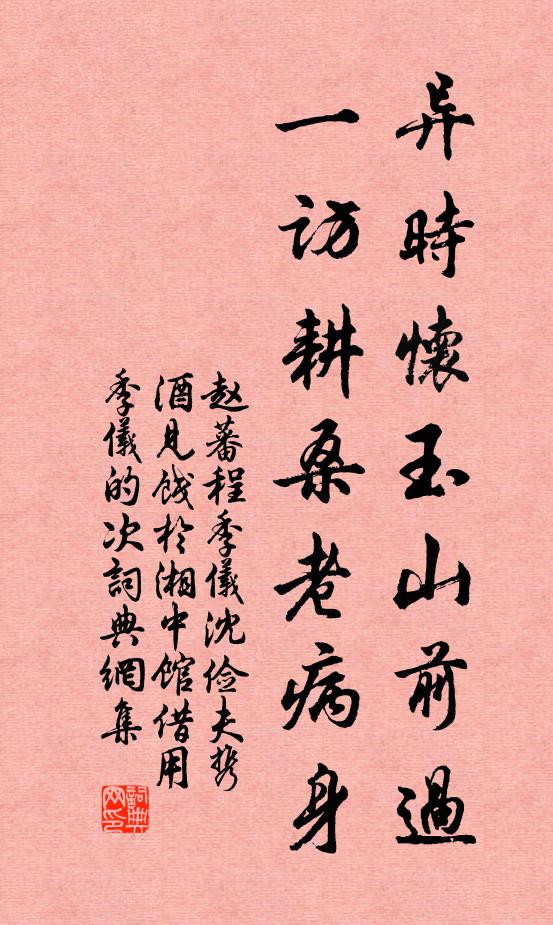 异時懷玉山前過
一訪耕桑老病身
赵蕃程季儀沈俭夫携
酒見餞於湘中馆借用
季儀的次詞典網集
詞典网印